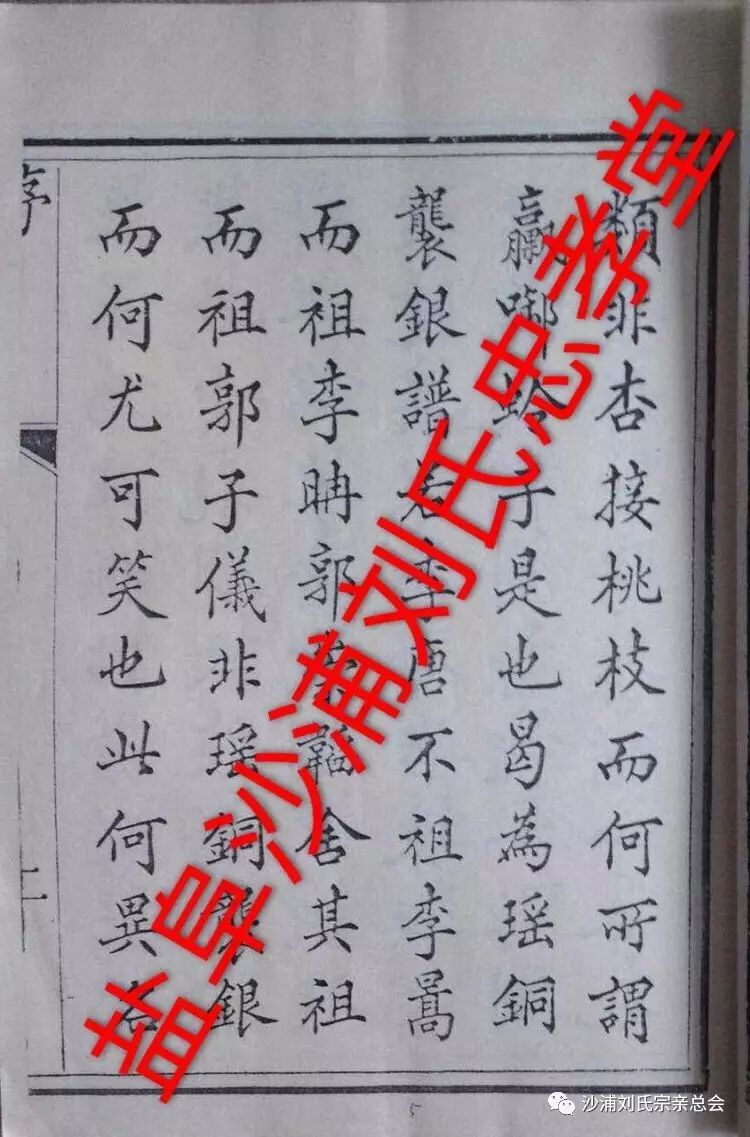 類非杏接桃枝而何所謂
蠃啣蛉子是也曷為瑶銅
襲銀譜若李唐不祖李暠
而祖李聃郭崇韜舍其祖
而祖郭子儀非瑶銅襲銀
而何尤可笑也此何異名
序
二
盐阜沙浦刘氏忠孝堂
5
沙浦刘氏宗亲总会